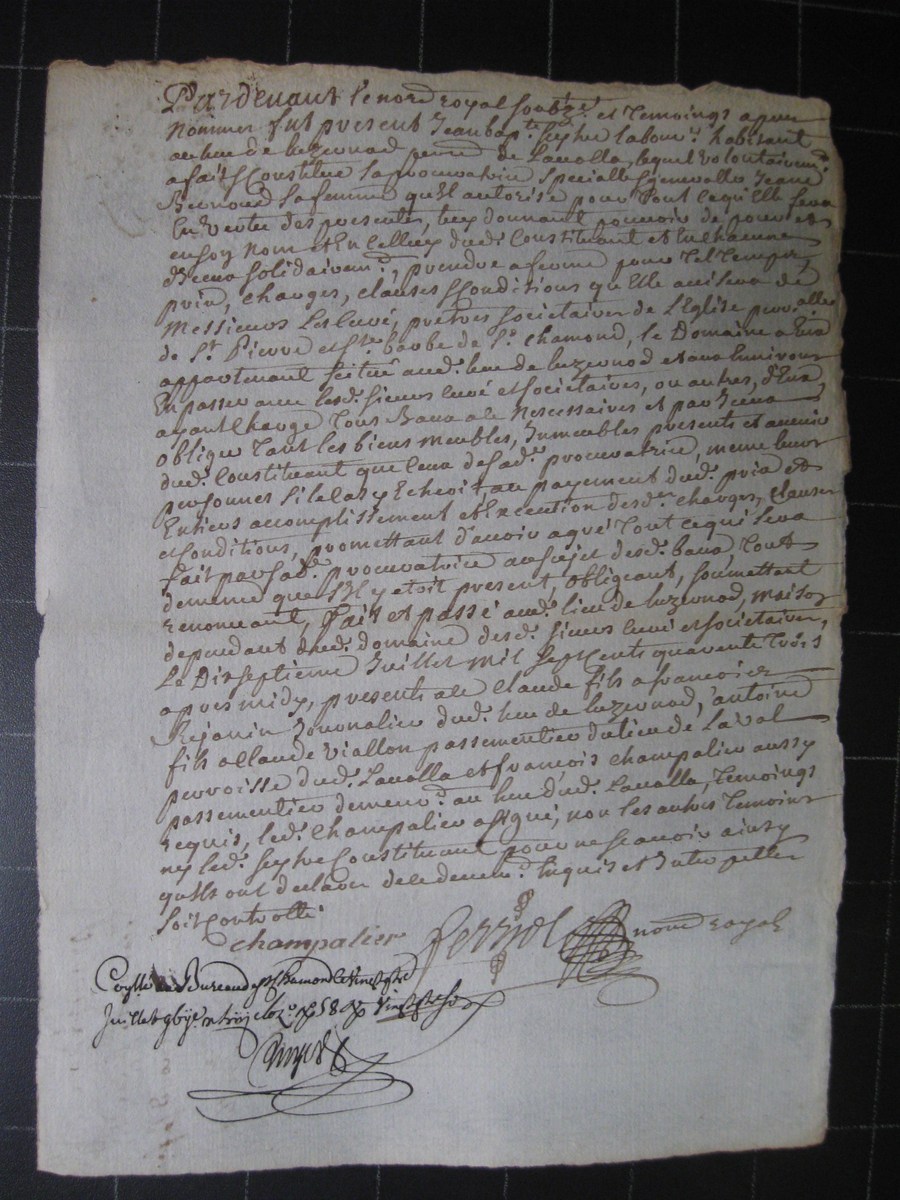 Pardevant le no.re royal soubz.né et temoings apres
nommes fut present Jean bap.te seyve labour.r habitant
au lieu de luzernod perr.e de Lavalla, lequel volontairem.t
a fait & Constitué sa procuratrice specialle & generalle Jeane
Bernond sa femme qu'il autorise pour tout ce qu'elle fera
En Vertu des presentes, luy donnant pouvoir de pour et
en son Nom et En Celluy dudi. Constituant et En chacune
d'Eeux solidairem.t, prendre a ferme pour tel temps,
prix, charges, clauses & Conditions qu'elle avisera de
Messieurs Les Curé, prêtres societaires de L'Eglise parr.alle
de S.t Pierre et S.te barbe de S.t Chamond, le Domaine a Eux
appartenant scitué aud. lieu de luzernod et aux Environs
En passer avec lesd. sieurs curé et societaires, ou autres, d'Eux
ayant charge tous Baux a le Necessaires et par Iceux
oblige tant les biens meubles, Inmeubles presents et avenir
dud. Constituant que Ceux de sad. procuratrice, meme leurs
personnes si le cas y Echeoit, au payement dud. prix et
Entiers accomplissement et Execution desd. charges, clauses
et Conditions, promettant d'avoir agréé tout ce qui sera
fait par sad. procuratrice au sujet desd. baux tout
de meme que s'il y etoit present, obligeant, soumettant
renonceant, fait et passé aud. lieu de luzernod, maison
dependant dud. domaine desd. sieurs curé et societaires,
Le Dixseptieme Juillet mil sept cents quarente trois
apres midy, presents a ce Claude fils a francois
Rejanin Journalier dud. lieu de luzernod, antoine
fils a Claude Viallon passementier du lieu de Laval
perroisse dud. Lavalla et françois champalier aussy
passementier demeur.t au lieu dud. Lavalla, temoings
requis, led. Champalier a signé, non les autres temoins
ny led. seyve Constituant pour ne scavoir ainsy
qu'ils ont declaré de ce deuem.t Enquis et Interpellés
soit Controllé
champalier Perriol no.re royal
Con.llé au Bureau de S.t Chamond le Vingt
Juillet